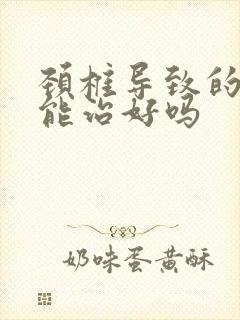 颈椎导致的
能治好吗
奶味蛋黄酥